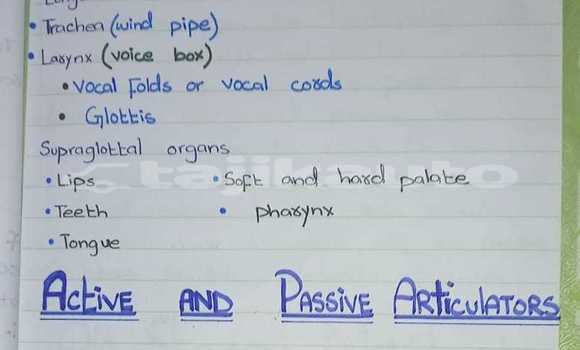 • Trachea (wind pipe)
• Larynx (voice box)
• Vocal Folds or vocal cords
• Glottis
Supraglottal organs
• Lips • Soft and hard palate
• Teeth • pharynx
• Tongue
ACTIVE AND PASSIVE ARTICULATORS
tajikauto